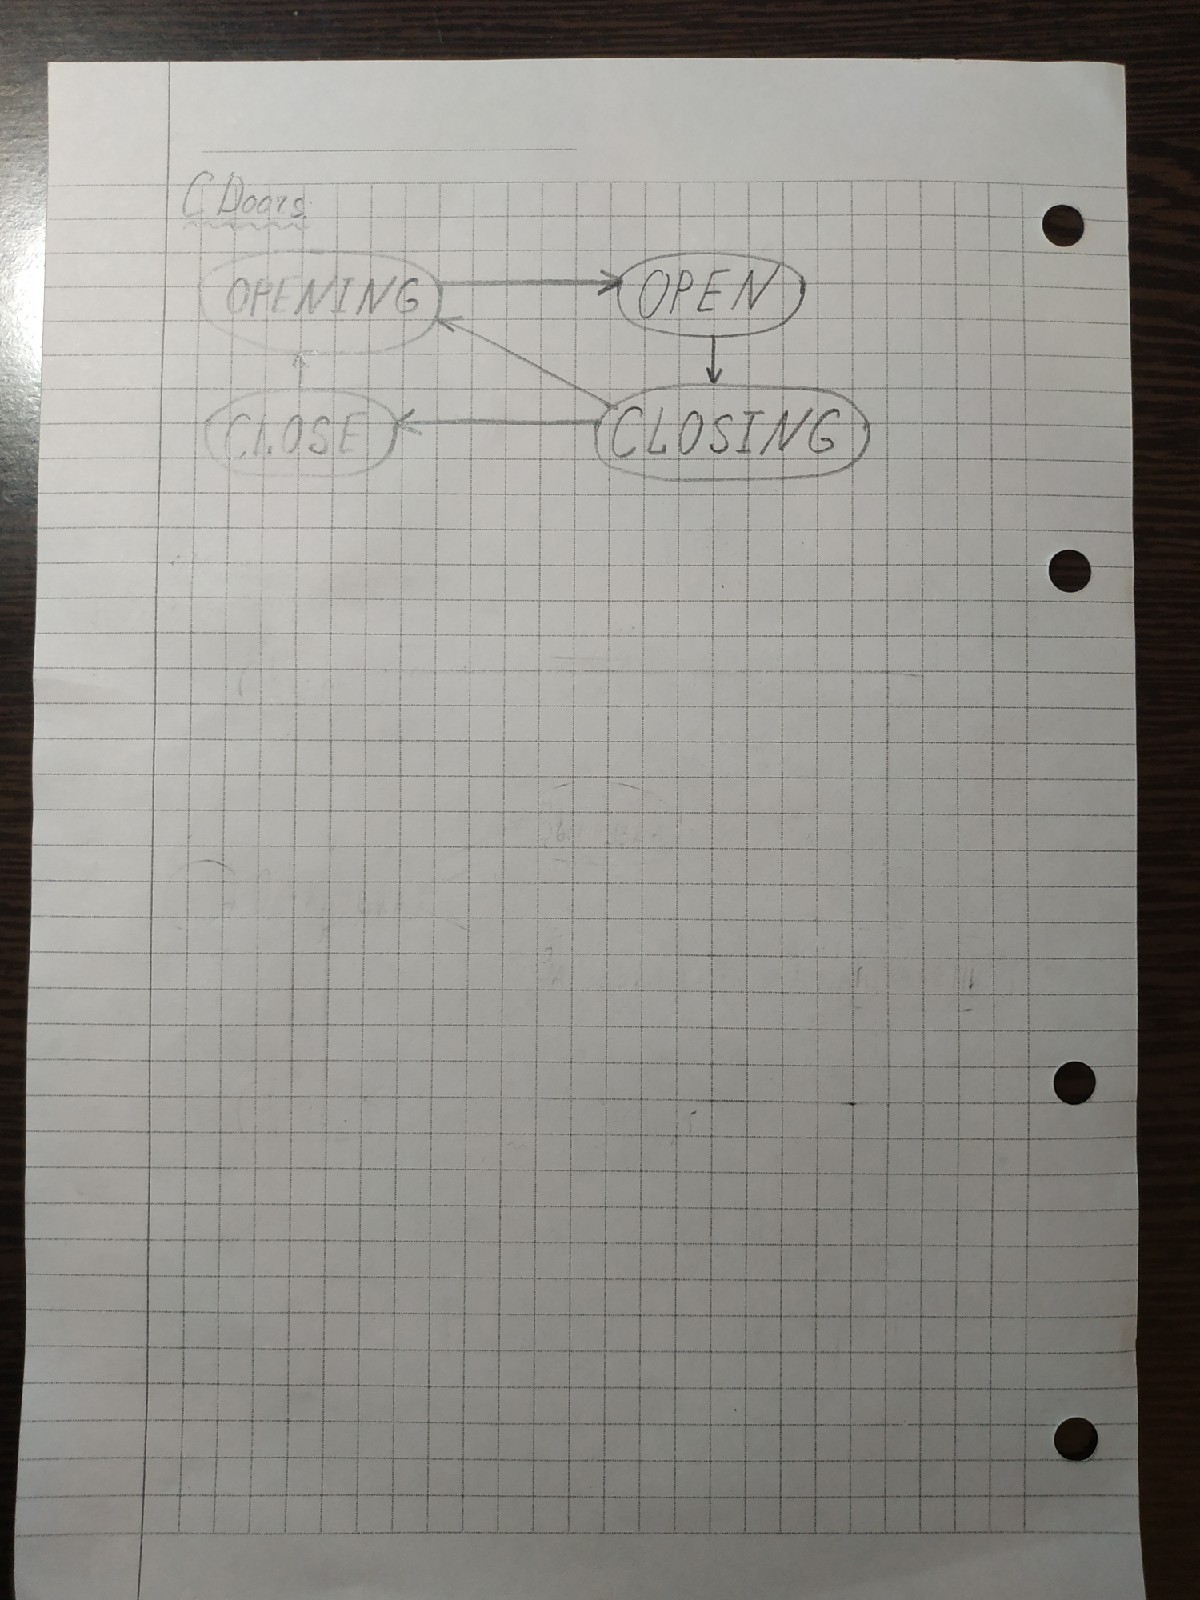 CDoors
OPENING OPEN
CLOSE CLOSING